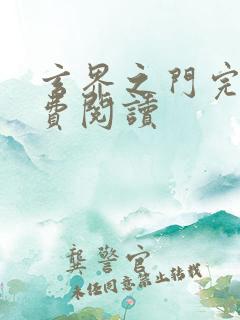 玄界之門完
費閱讀
龔警官
未經同意禁止轉載